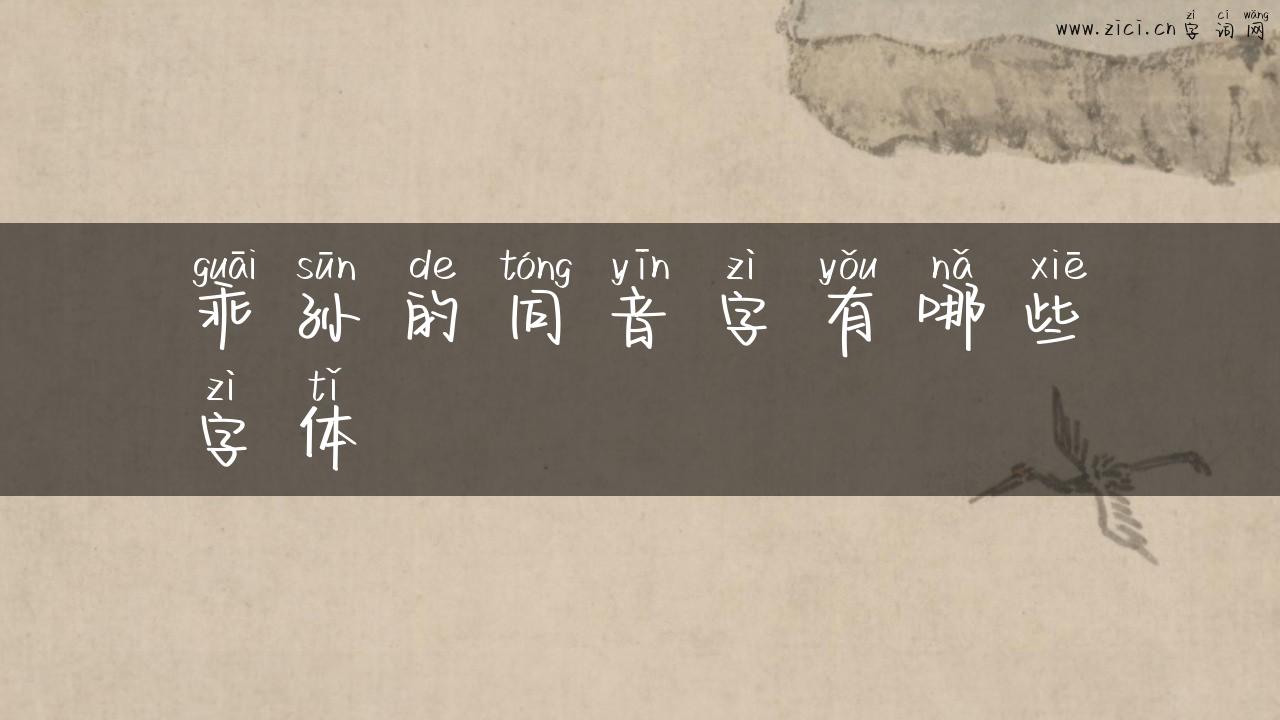 zì cí wǎng
www.zici.cn 字词网
guāi sūn de tóng yīn zì yǒu nǎ xiē
乖孙的同音字有哪些
zì tǐ
字体